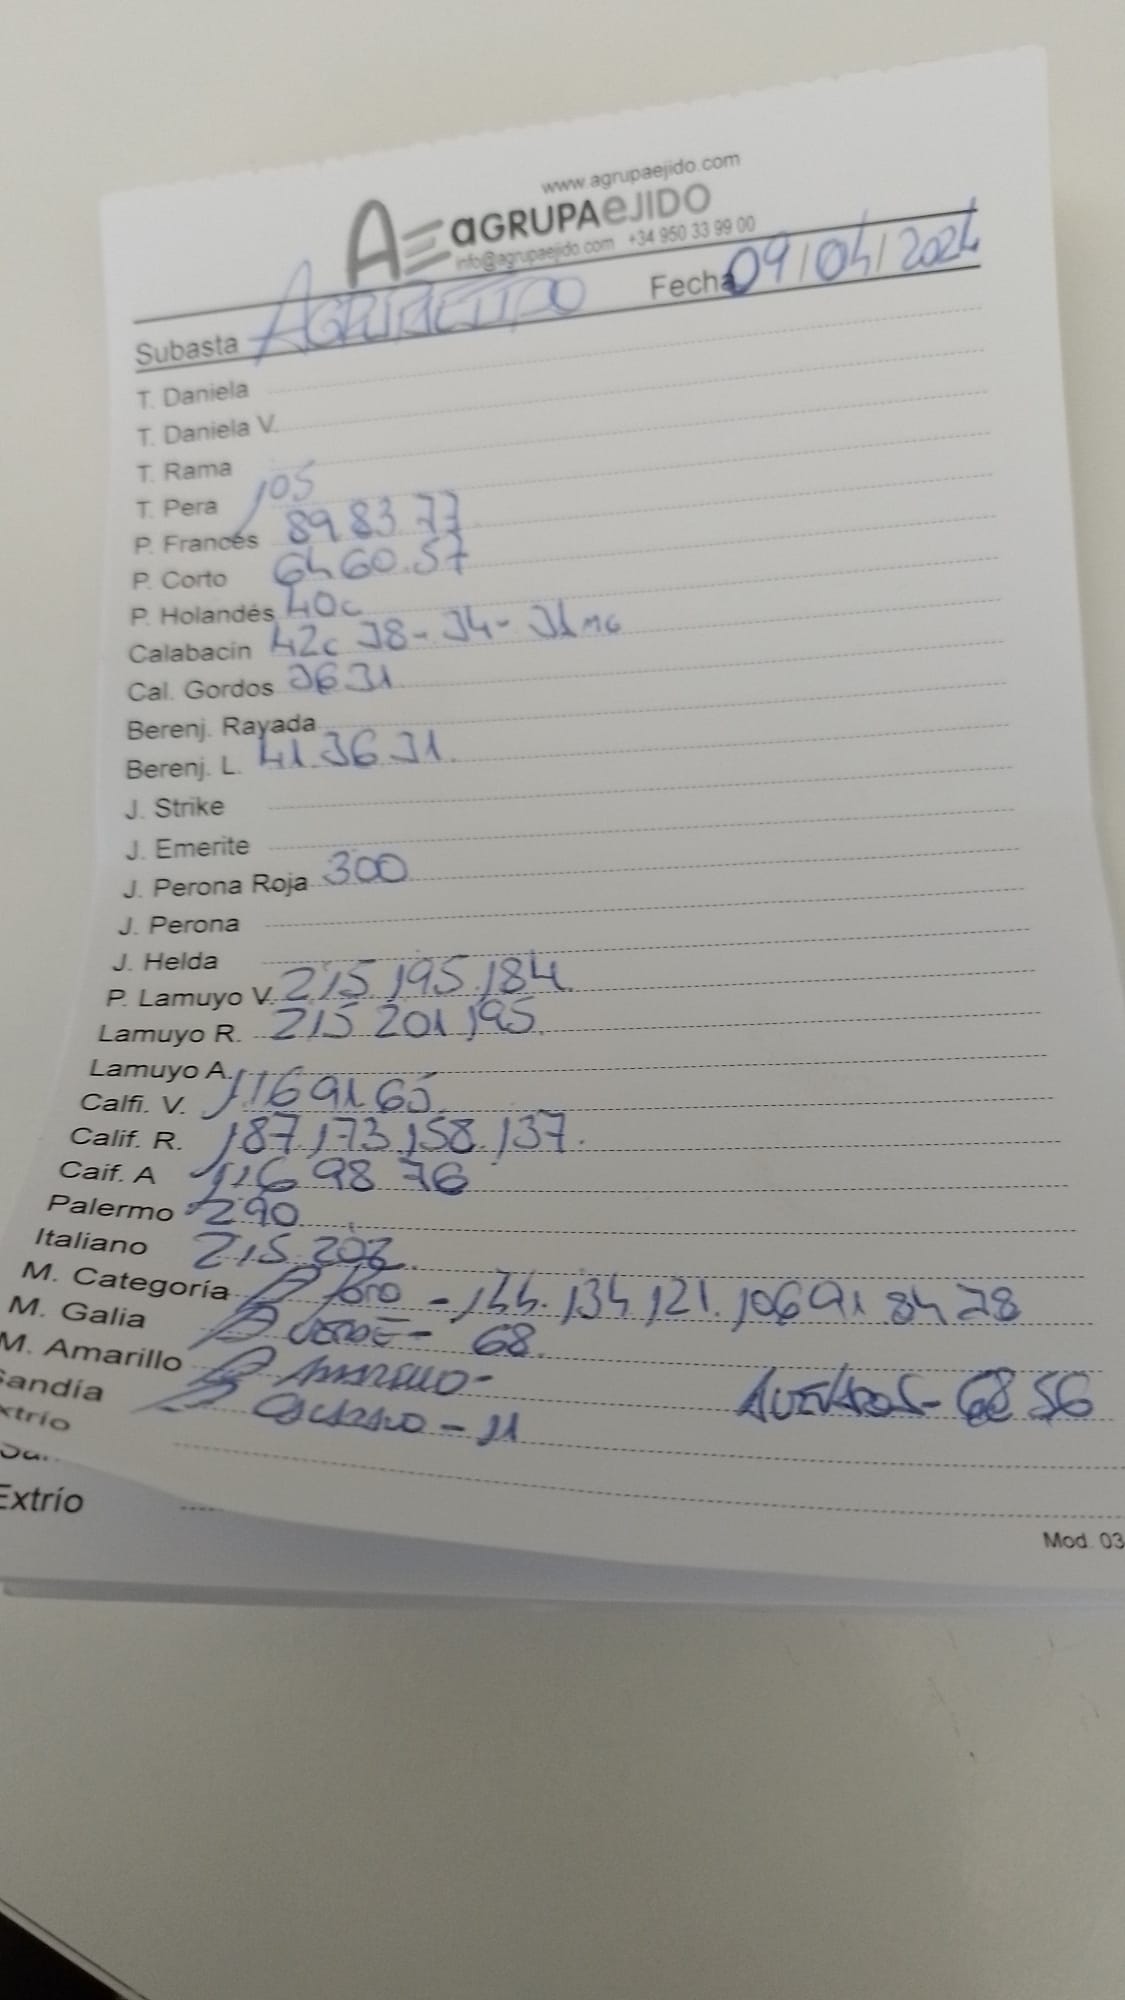 www.agrupaejido.com
AE aGRUPAeJIDO
info@agrupaejido.com +34 950 33 99 00
Subasta AGRUPAEJIDO Fecha 09/04/2024
T. Daniela
T. Daniela V.
T. Rama
T. Pera 105
P. Francés 89 83 77
P. Corto 64 60.57
P. Holandés 40c
Calabacin 42c 38-34-31 MG
Cal. Gordos 3631
Berenj. Rayada
Berenj. L. 41 36 31.
J. Strike
J. Emerite
J. Perona Roja 300
J. Perona
J. Helda
P. Lamuyo V. 215.195.184.
Lamuyo R. 215 201 195.
Lamuyo A.
Calfi. V. 116 91 65
Calif. R. 187.173.158.137.
Caif. A 116 98 76
Palermo 290
Italiano 215.202.
M. Categoría P toro - 144.134.121.106 91 84 78
M. Galia P VERDE - 68.
M. Amarillo P AMARILLO -
Sandía P ASURADO - 31 68 56
xtrío
Extrío
Mod. 03